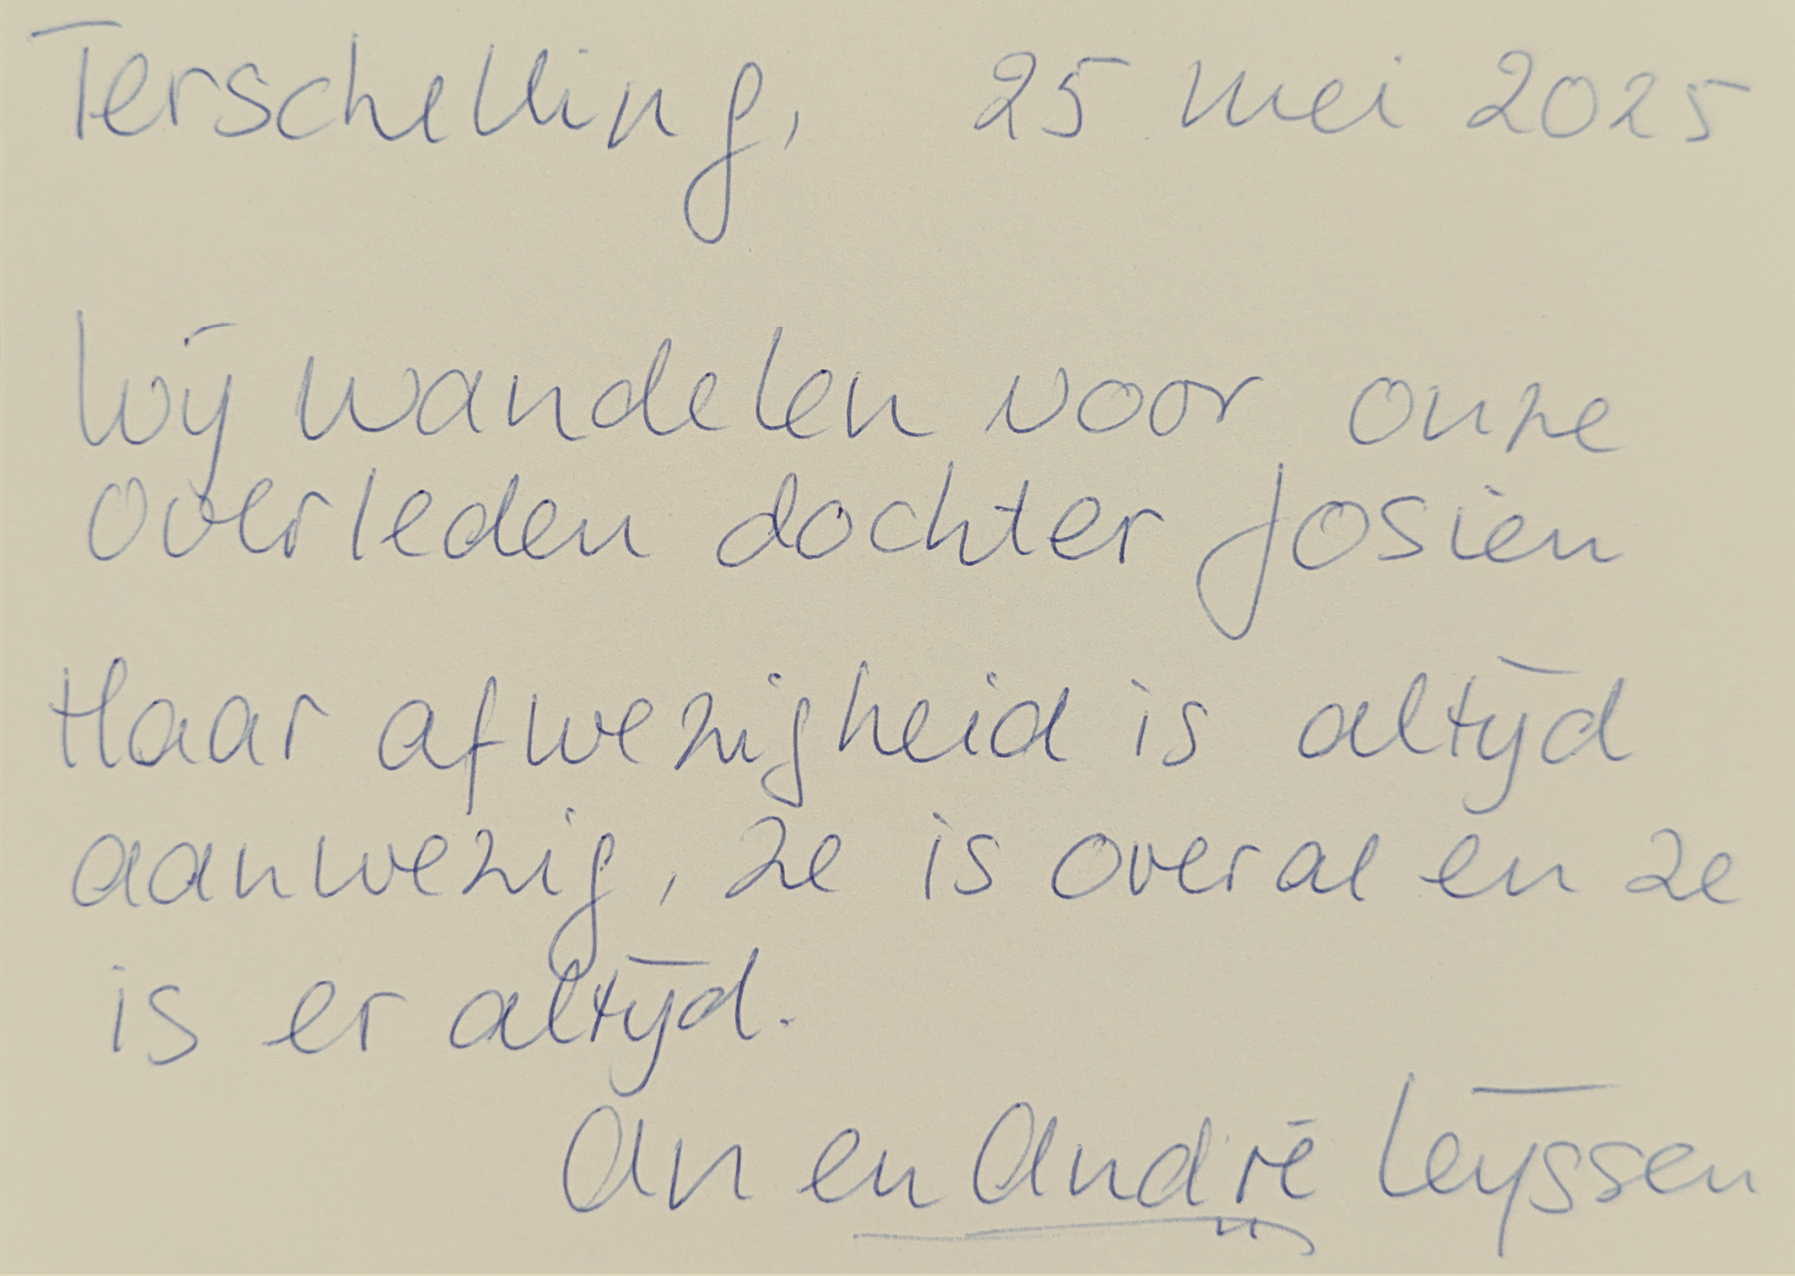 Terschelling, 25 mei 2025
Wij wandelen voor onze
overleden dochter Josien
Haar afwezigheid is altijd
aanwezig, ze is overal en ze
is er altijd.
An en André Leijssen